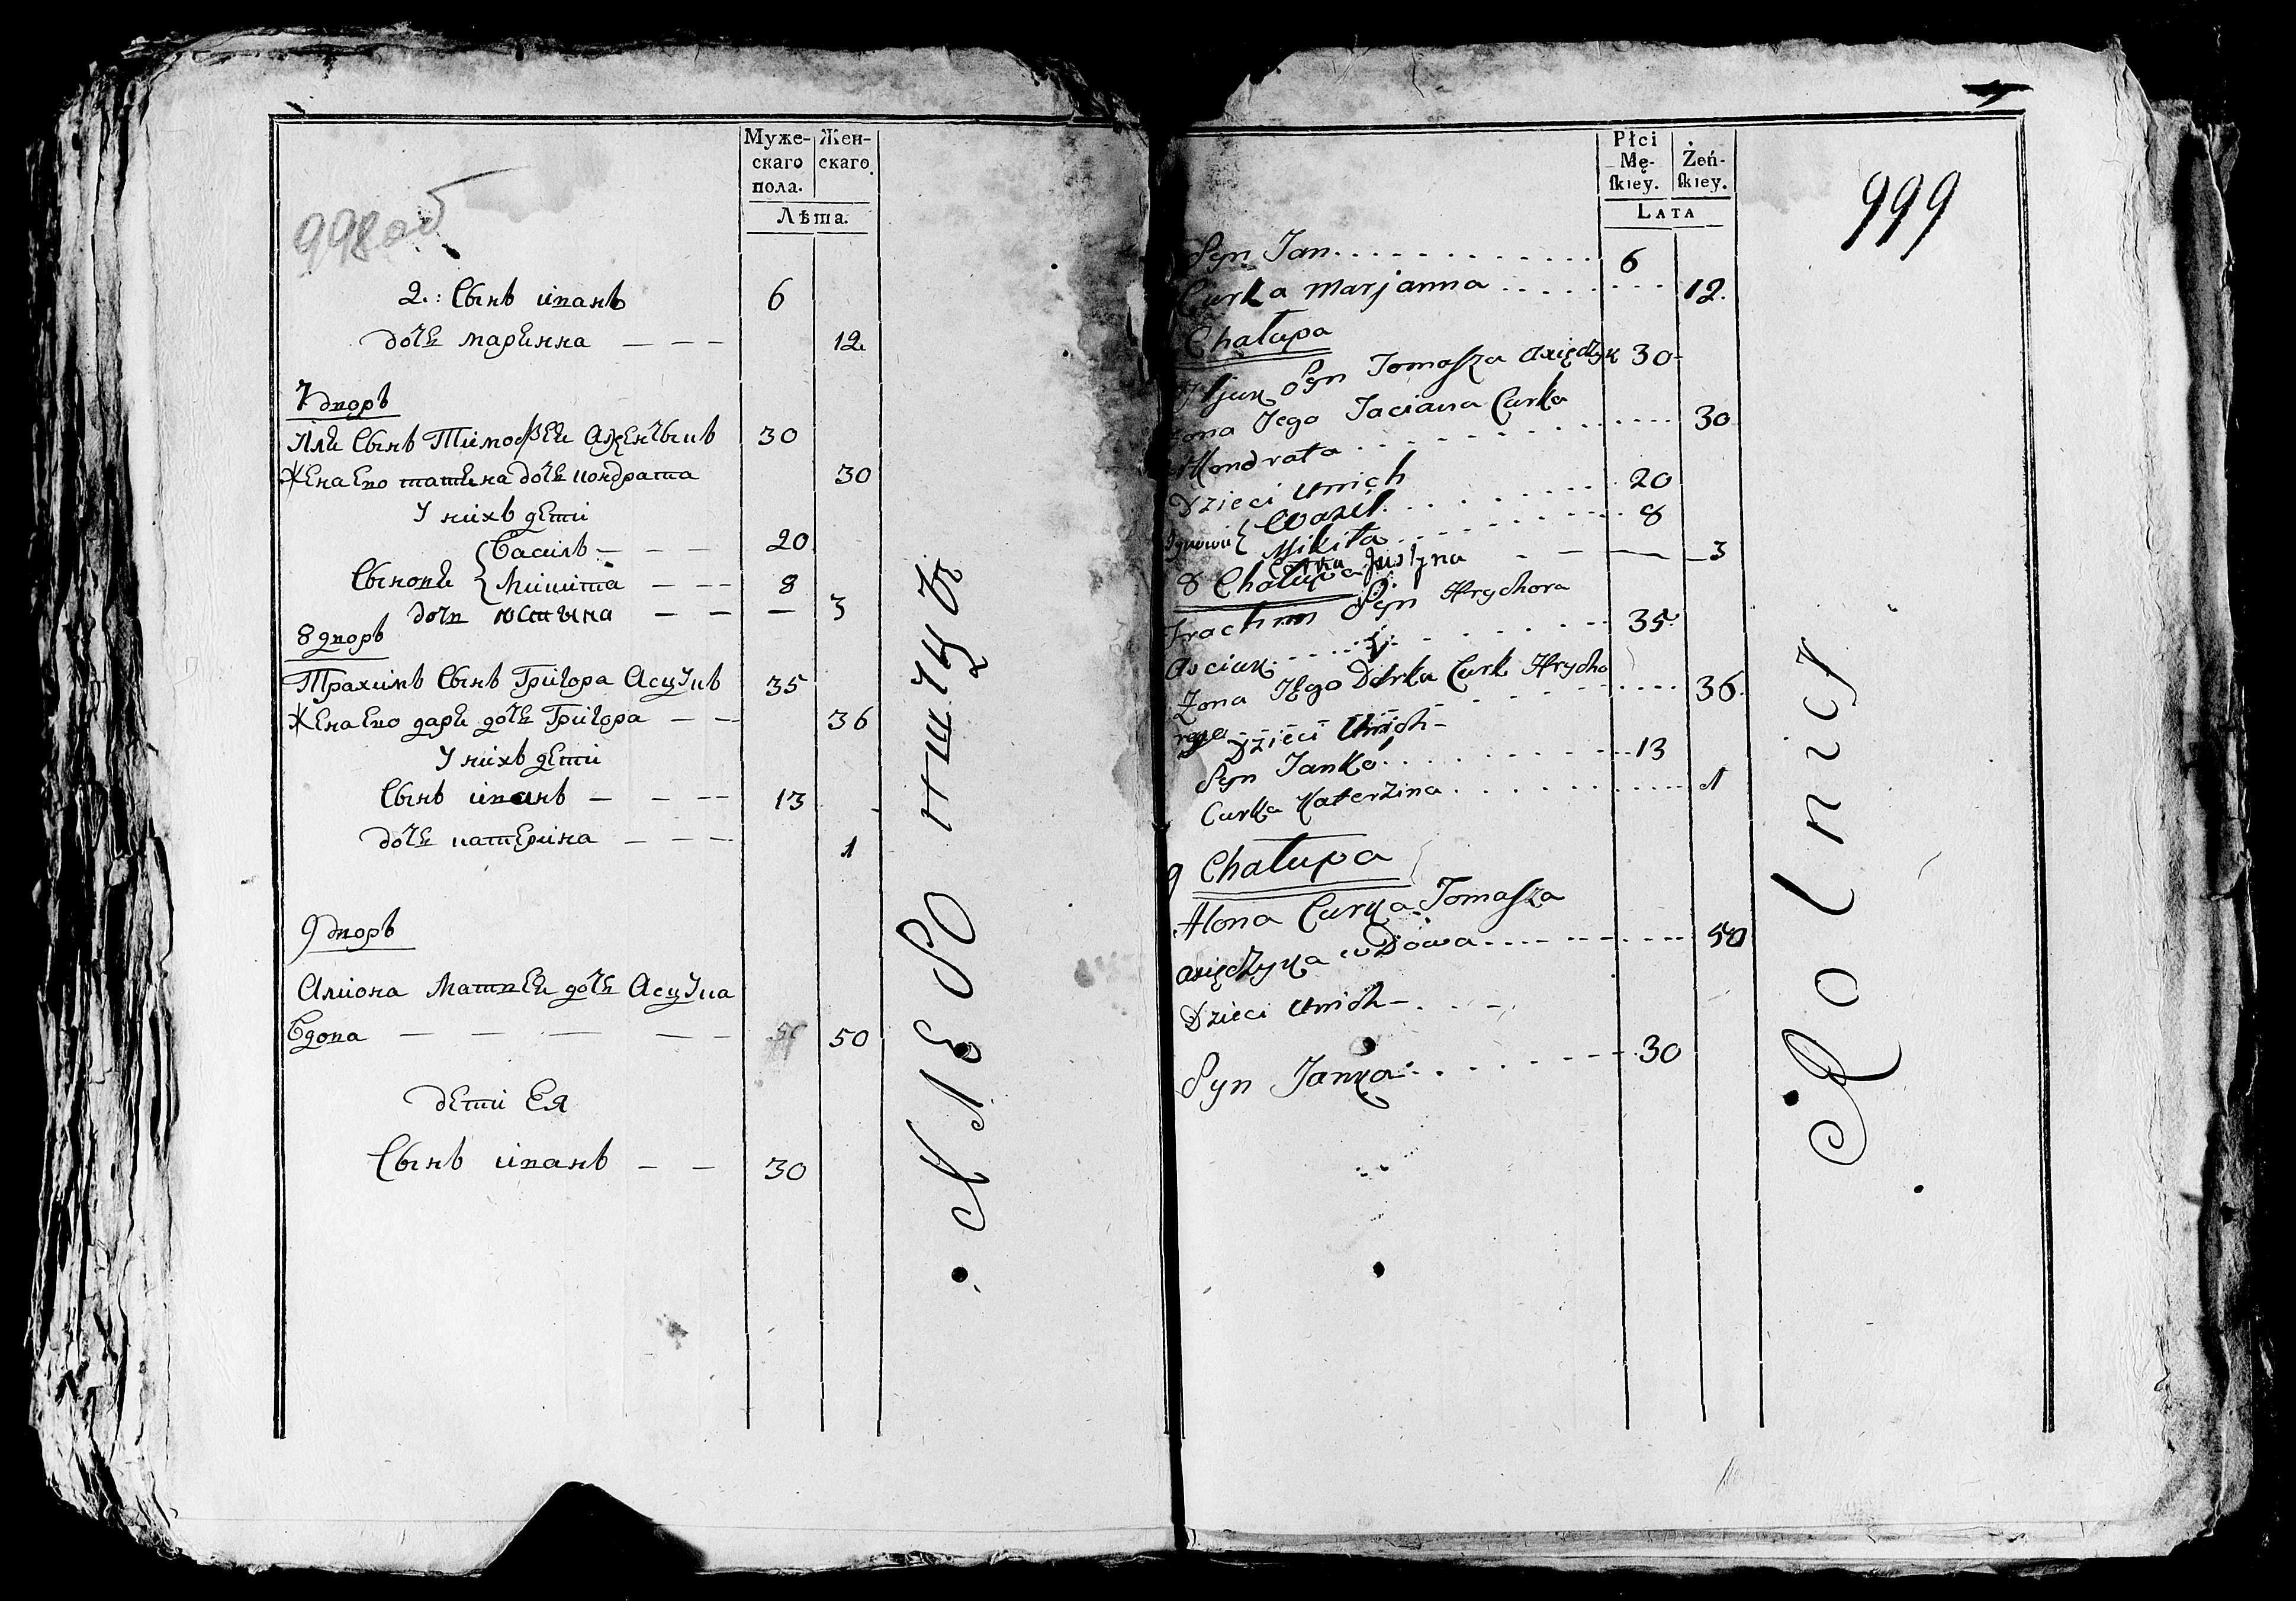 Муже-
скаго
пола.
Жен-
скаго.
Лѣта.
998об
2.: Сынъ иванъ 6
дочь маринна — — — 12
7 дворъ
Или Сынъ Тимофеи 30
Жена Ево татьяна дочь кондрата 30
У нихъ дети
Василь — — — 20
Сынови { Микита — — — 8
дочь юстына — — — 3
8 дворъ
Трахимъ Сынъ Григора Асцукъ 35
Жена Ево дари дочь Григора — — 36
У нихъ дети
Сынъ иванъ — — — 13
дочь катерина — — — 1
9 дворъ
Алиона Матвеи дочь Асцука
Вдова — — — — — 50
дети Ея
Сынъ иванъ — — 30
Płci
Mę-
ſkiey.
Żeń-
ſkiey.
LATA
999
Syn Jan. . . . . . . . . . . . . 6
Curka Marjanna . . . . . . . . 12.
Chałupa
Syn Tomaſza 30
Żona Jego Taciana Curka
Kondrata . . . . . . . . . . . 30
Dzieci Unich
Wasil. . . . . . . . . 20
Synowie { Mikita . . . . . . . . . 8
Curka Justyna - — — 3
8 Chałupa
Trachim Syn Hrychora
Asciuk. . . . . . . . . . . . 35
Żona Jego Darka Curk Hrycho
ra . . . . . . . . . . . 36.
Dzieci Unich-
Syn Janko. . . . . . . . . 13
Curka Katerzina . . . . . . . . . 1
9 Chałupa
Alona Curka Tomaſza
wdowa. . . . . . . . . . . 50
Dzieci Unich-. . -
Syn Janka. . . . . . . . . 30
Rolnicy